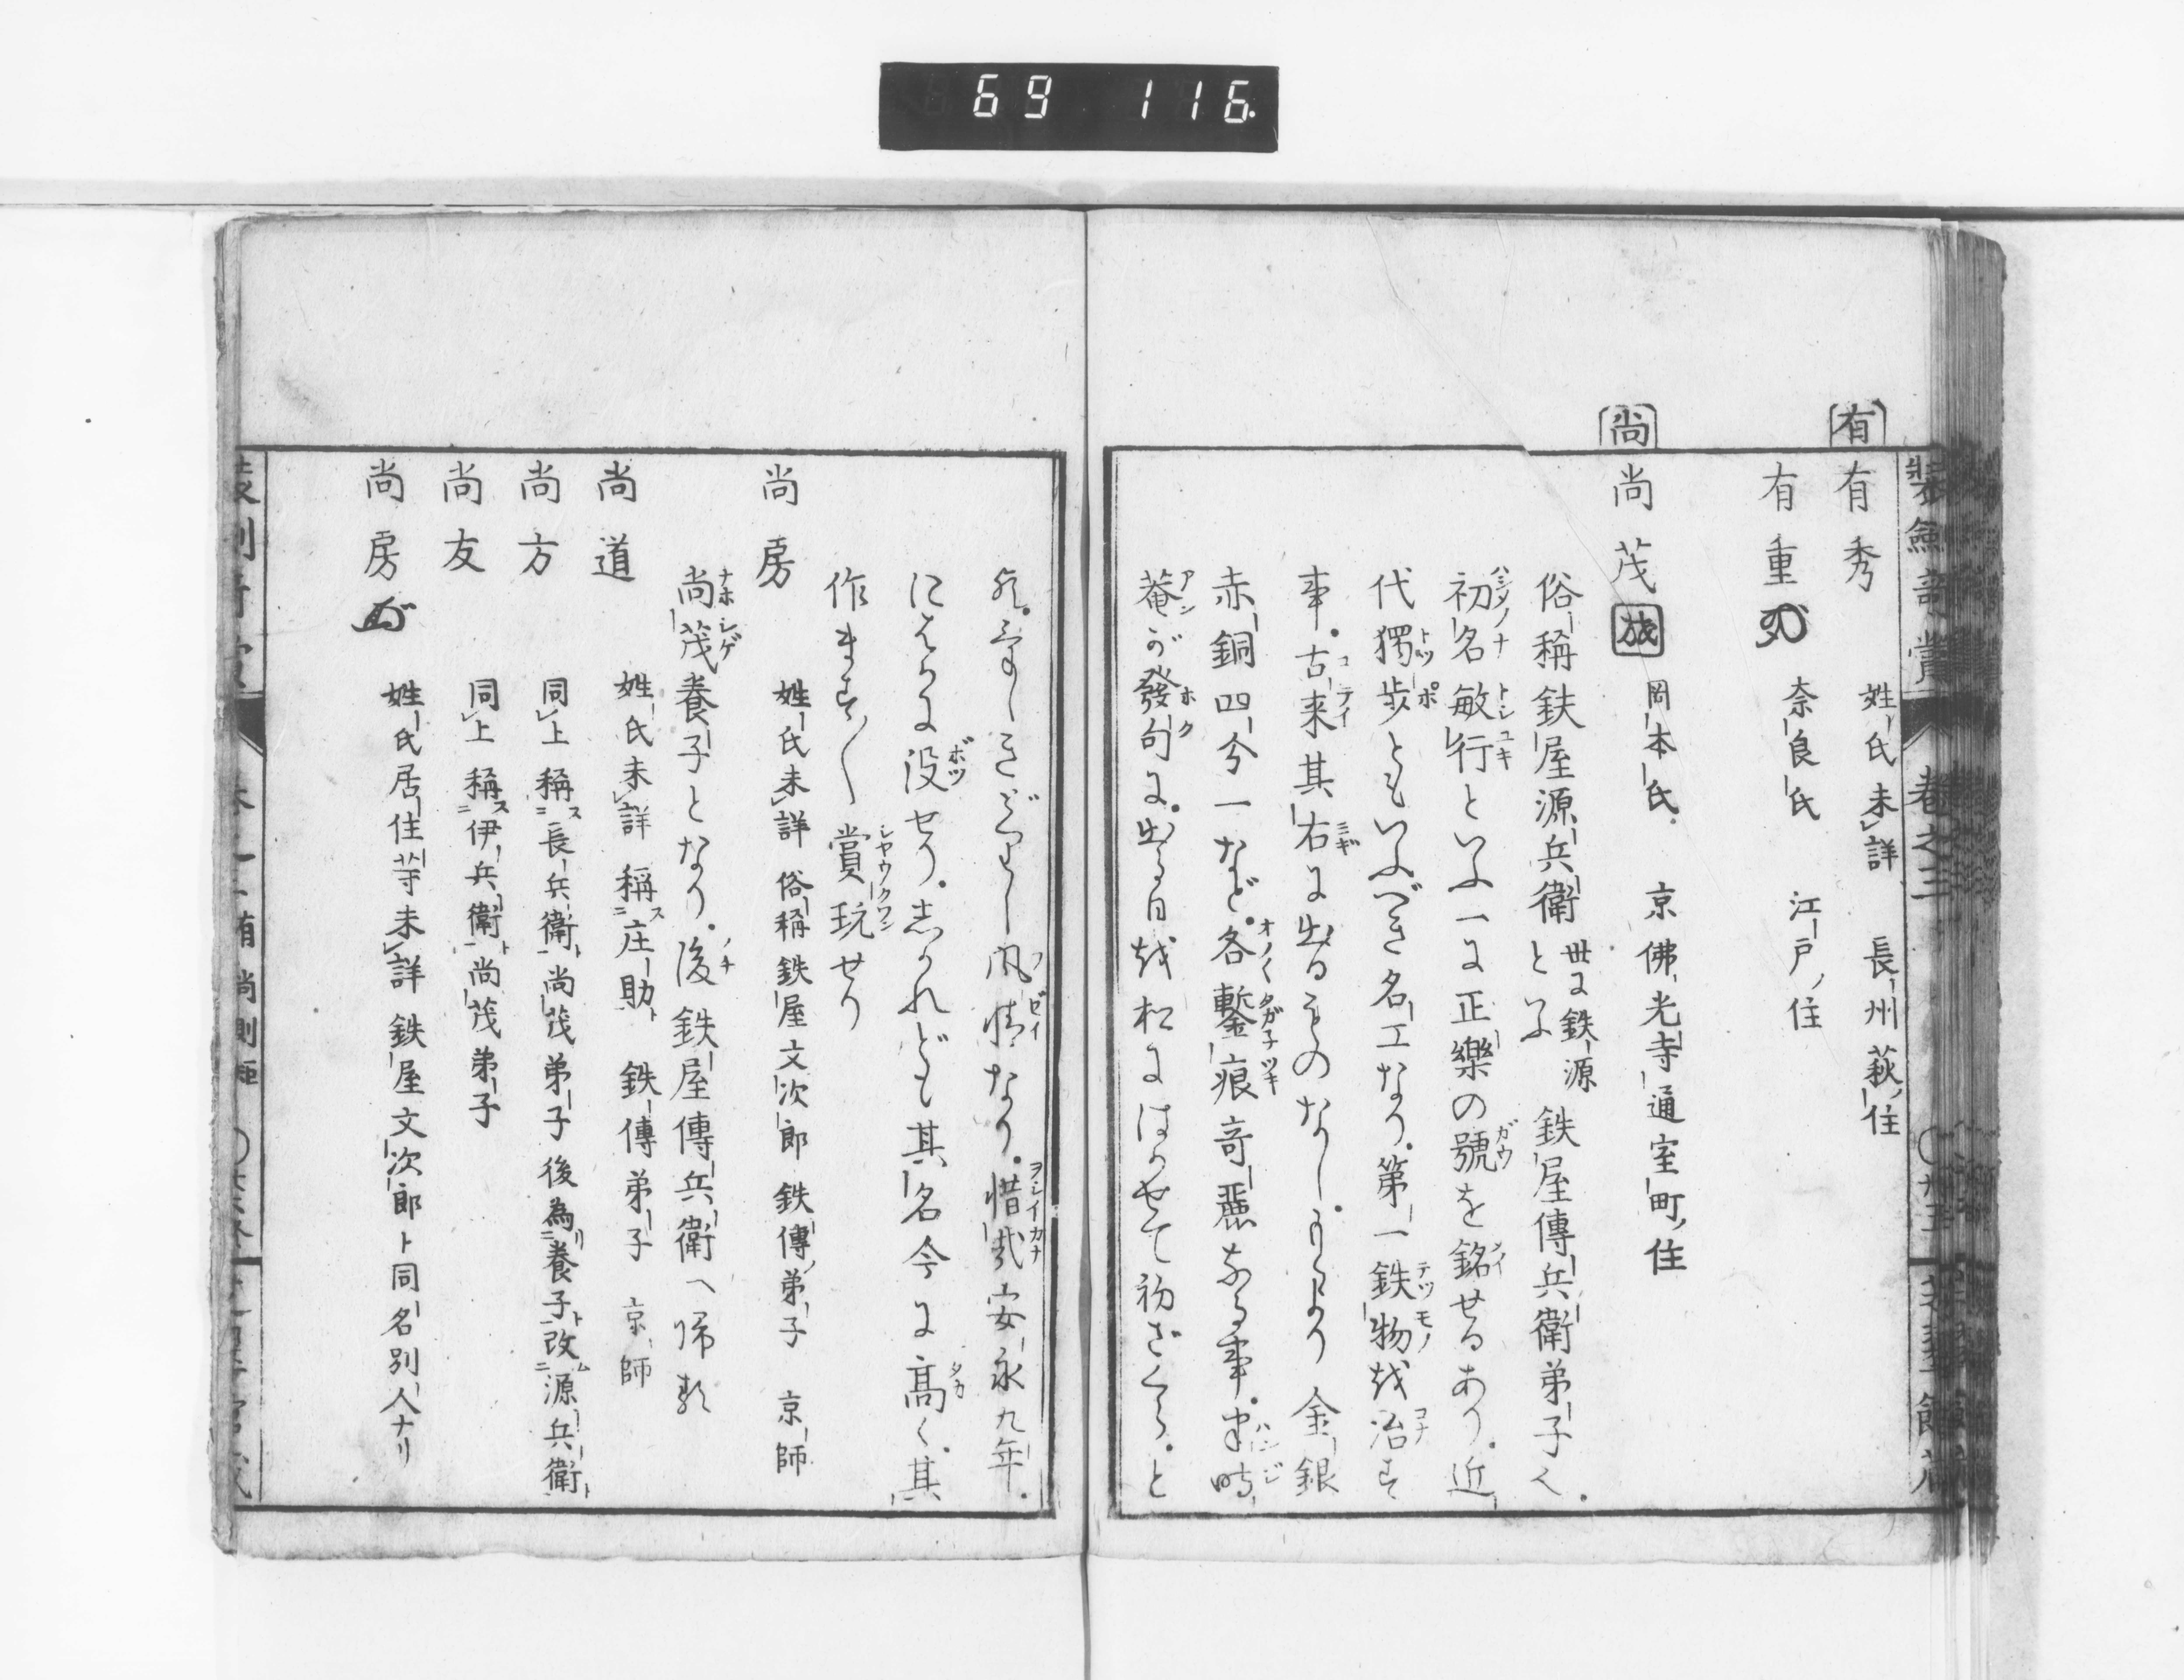 69 116
有
有秀 姓氏未詳 長州萩住
有重 奈良氏 江戸ノ住
尚
尚茂 岡本氏 京佛光寺通室町ノ住
俗稱鉄屋源兵衛といふ 世に鉄源 鉄屋傳兵衛弟子く
初名敏行といふ一に正樂の號を銘せるあり。近
代獨歩ともいふべき名工なり。第一鉄物越冶す
事。古来其右に出るものなし。 金銀
赤銅四分一など。各鏨痕奇麗なる事。 時
菴が發句に。出る日越松にはかせて初ざくら。と
風情なり。惜哉安永九年。
にはかに没せり。志かれども其名今に高く。其
作ます〱賞玩せり
尚房 姓氏未詳 俗稱鉄屋文次郎 鉄傳ノ弟子 京師
尚茂養子となり。後鉄屋傳兵衛へ帰
尚道 姓氏未詳 稱ス庄助ト 鉄傳弟子 京師
尚方 同上 稱ス長兵衛ト尚茂弟子後為リ養子ト改ム源兵衛ト
尚友 同上 稱ス伊兵衛ト尚茂弟子
尚房 姓氏居住等未詳 鉄屋文次郎ト同名別人ナリ